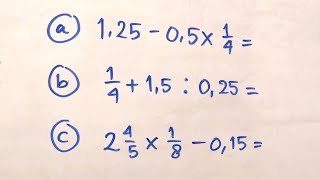 a 1,25 - 0,5 x 1/4 =
b 1/4 + 1,5 : 0,25 =
c 2 4/5 x 1/8 - 0,15 =